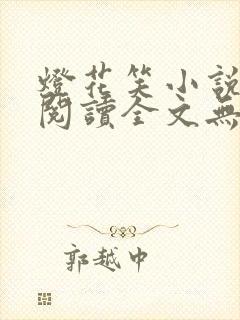 燈花笑小說
閱讀全文無
郭越中